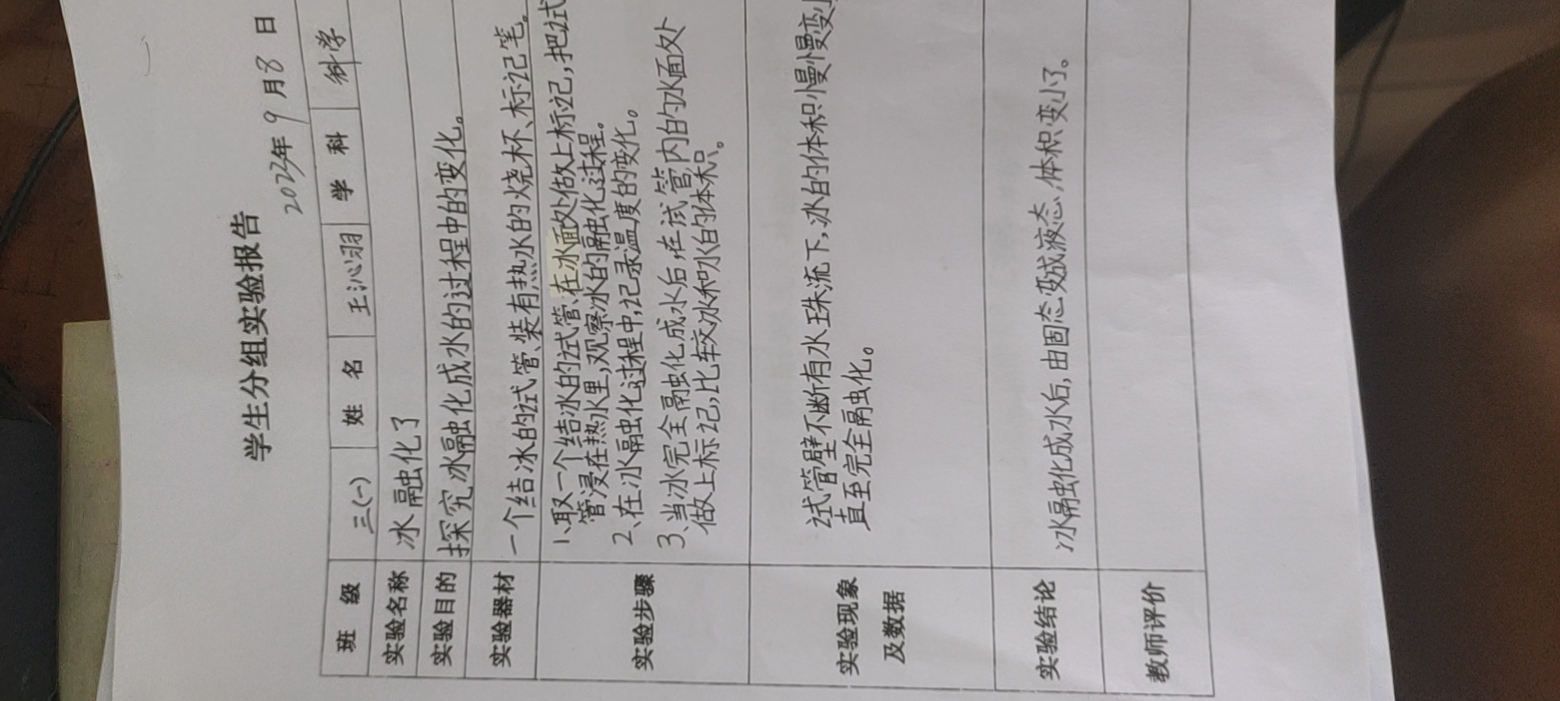 学生分组实验报告
2023年9月8日
班级 三(一) 姓名 王沁羽 学科 科学
实验名称 冰融化了
实验目的 探究冰融化成水的过程中的变化。
实验器材 一个结冰的试管、装有热水的烧杯、标记笔。
实验步骤
1、取一个结冰的试管、在冰面处做上标记,把试
管浸在热水里,观察冰的融化过程。
2、在冰融化过程中,记录温度的变化。
3、当冰完全融化成水后,在试管内的水面处
做上标记,比较冰和水的体积。
实验现象
及数据
试管壁不断有水珠流下,冰的体积慢慢变小
直至完全融化。
实验结论 冰融化成水后,由固态变成液态,体积变小了。
教师评价